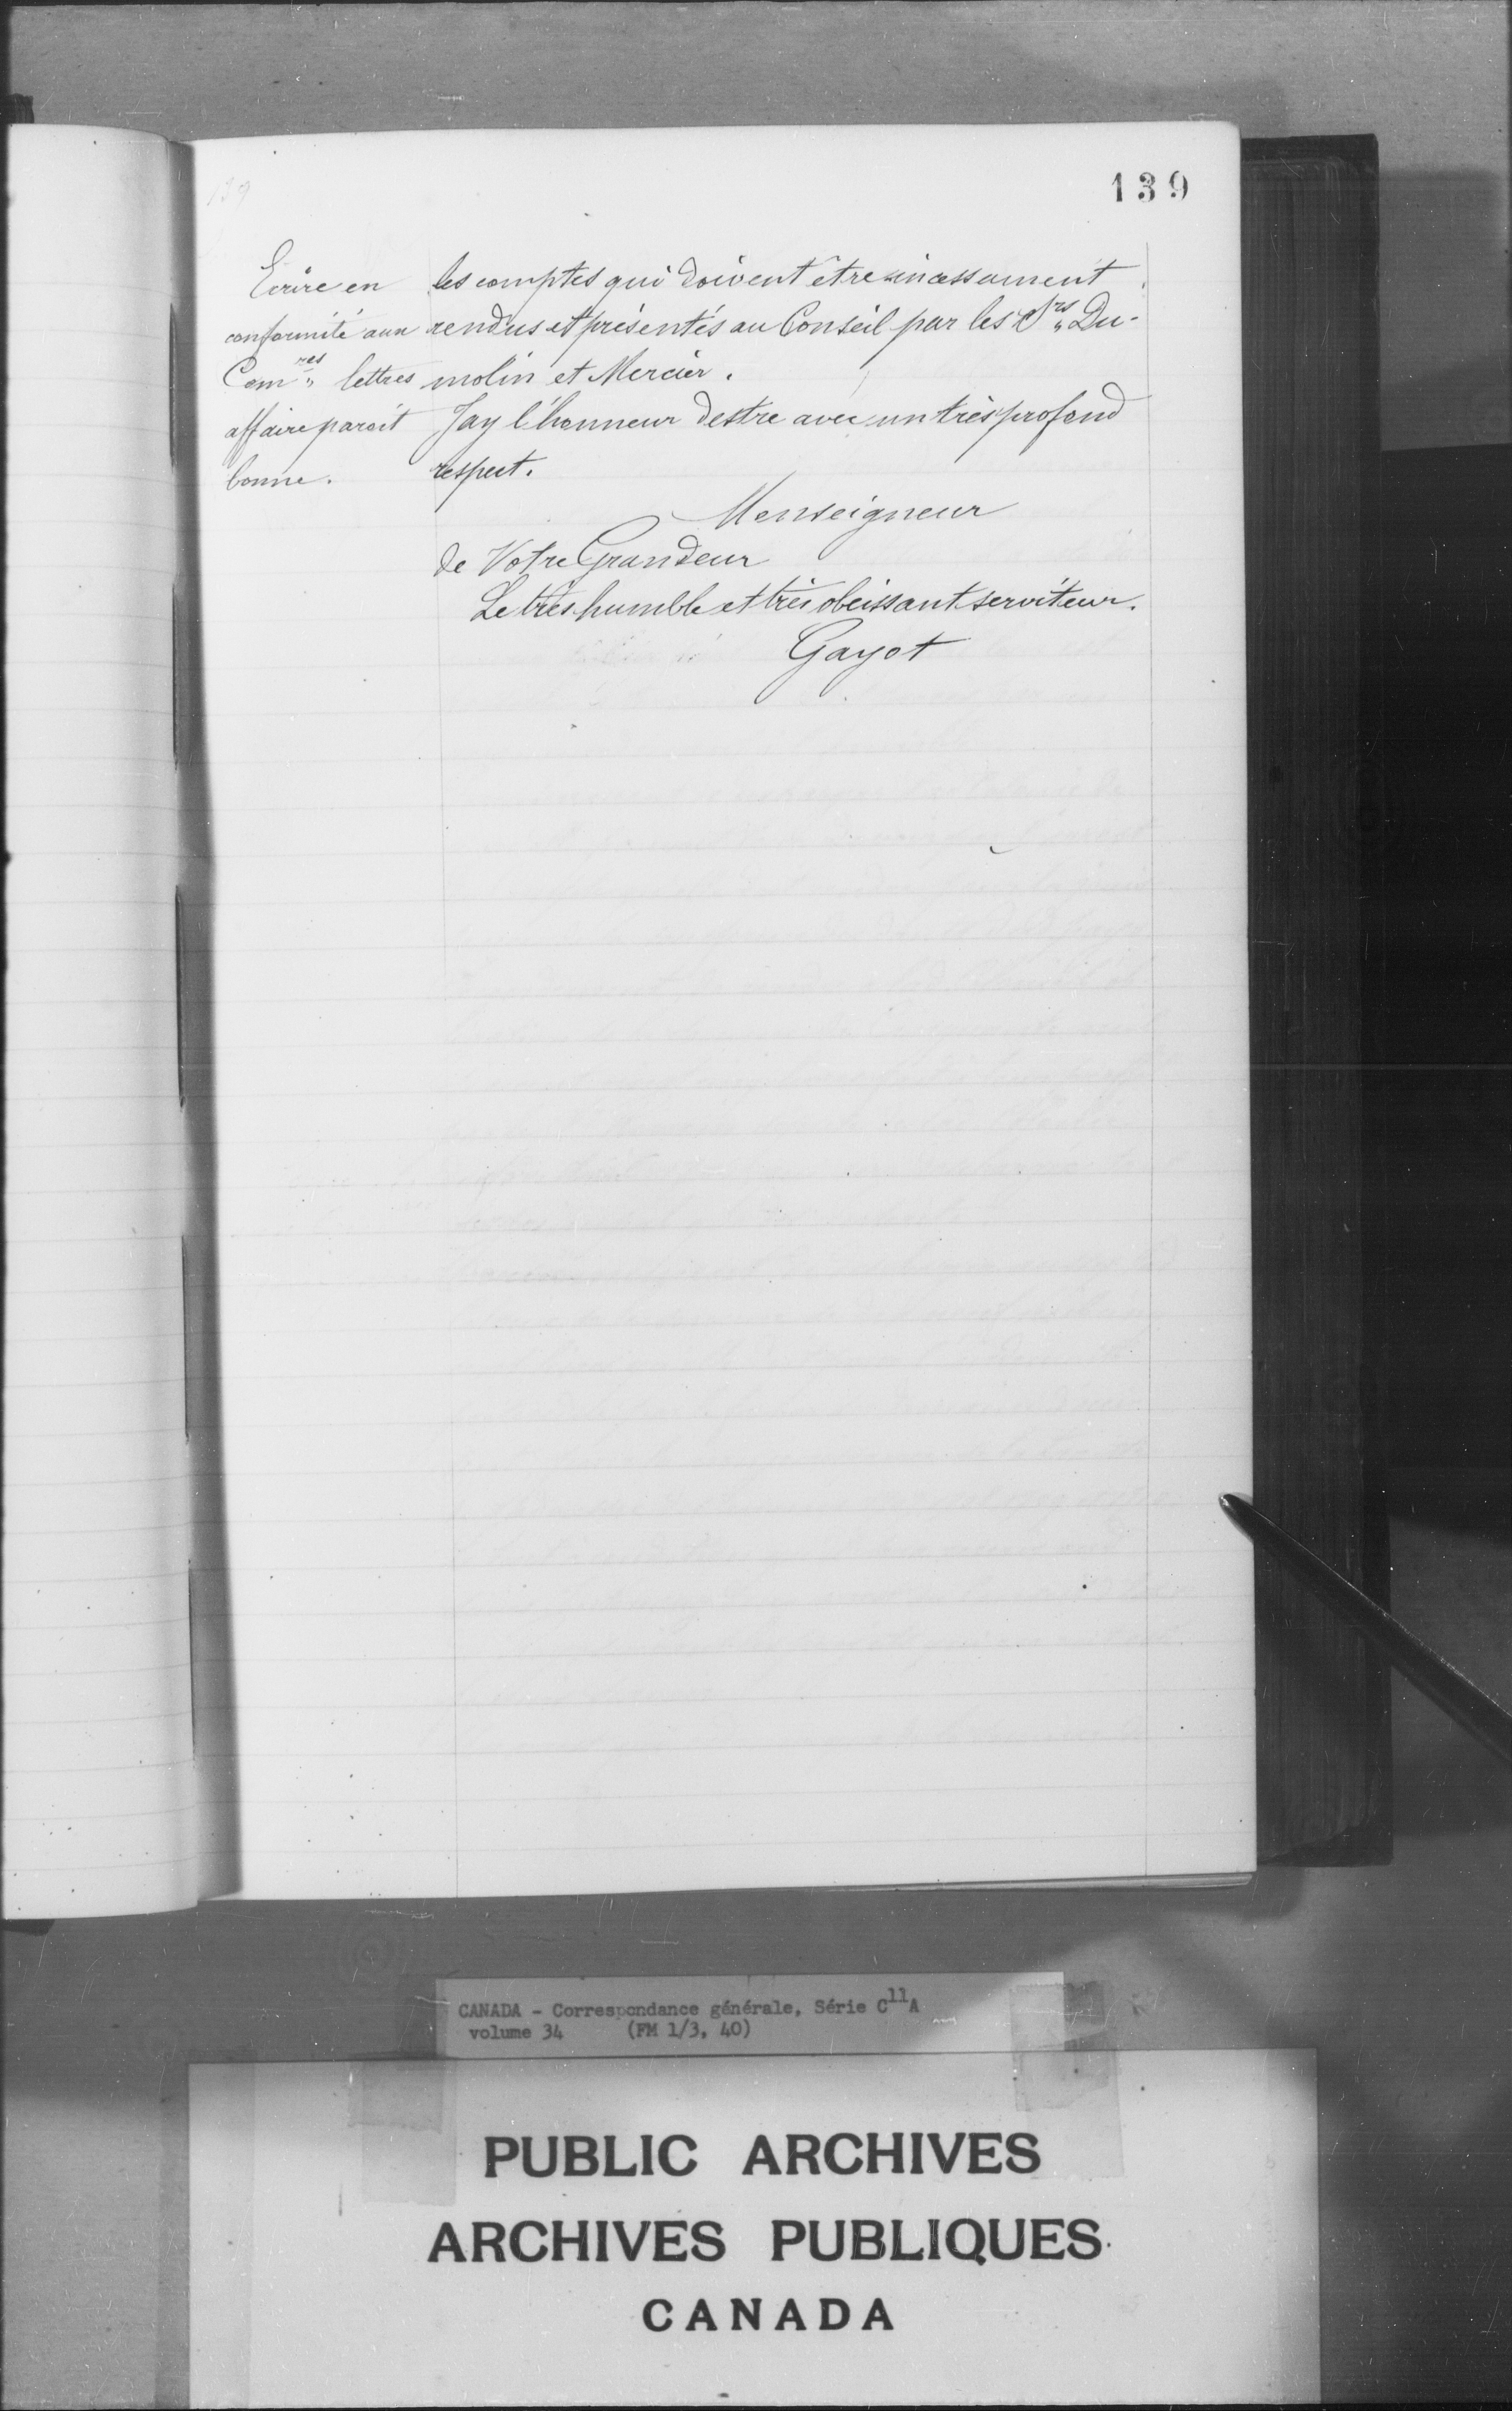 139
139
Ecrire en
conformité aux
Com.res lettres
affaire parait
bonne.
les comptes qui doivent être incessament
rendus et présentés au Conseil par les Srs Du-
molin et Mercier.
Jay l'honneur destre avec un très profond
respect.
Monseigneur
de Votre Grandeur
Le très humble et très obeissant serviteur.
Gayot
CANADA - Correspondance générale, Série C11A
volume 34 (FM 1/3, 40)
PUBLIC ARCHIVES
ARCHIVES PUBLIQUES
CANADA